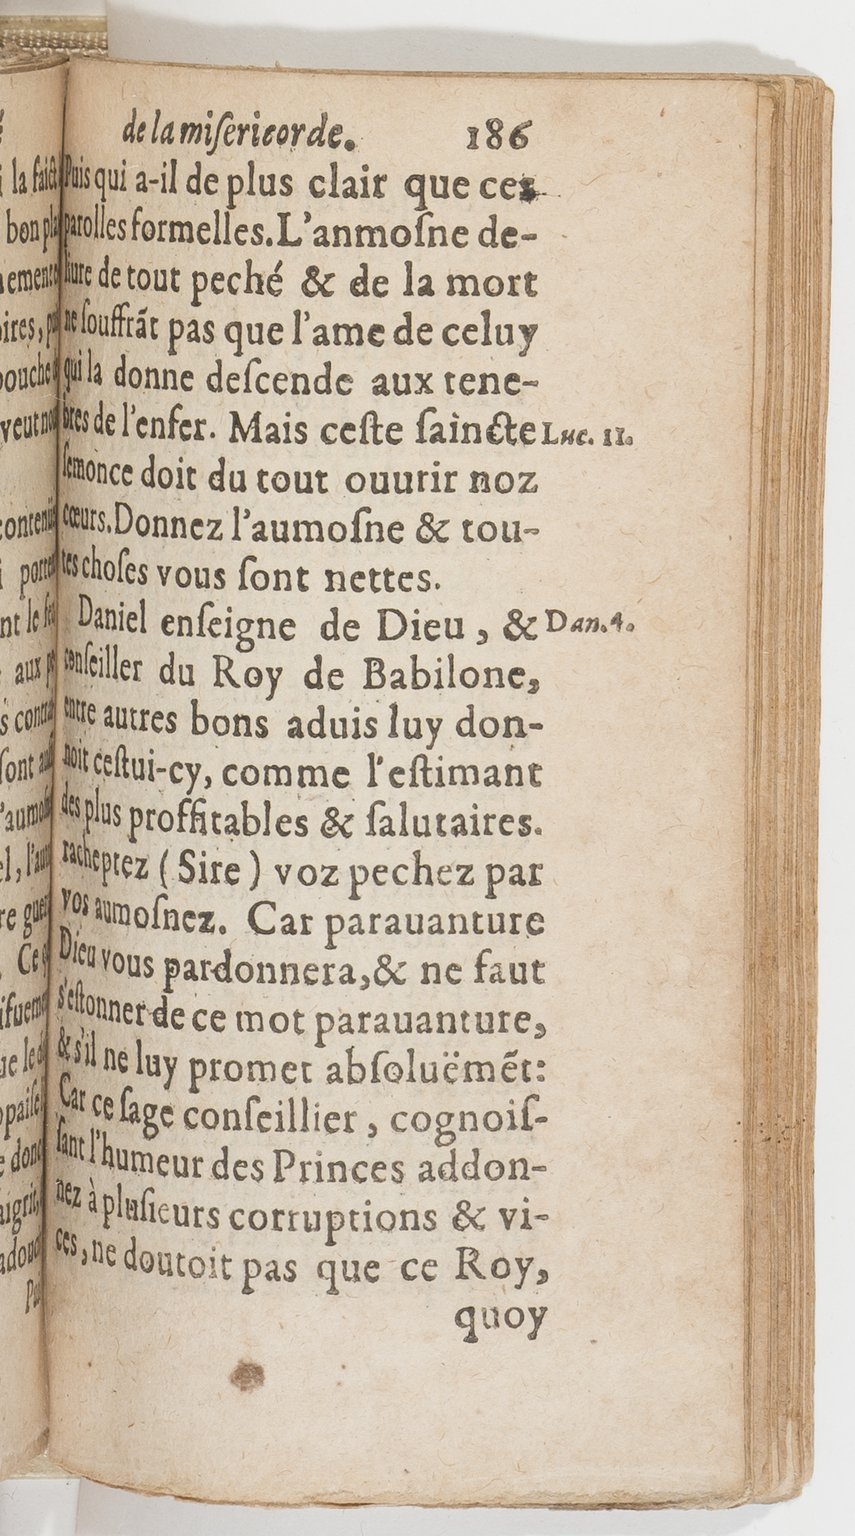 de la miſericorde. 186
Puis qui a-il de plus clair que ces
parolles formelles. L'anmoſne de-
liure de tout peché & de la mort
ne ſouffrãt pas que l'ame de celuy
qui la donne deſcende aux tene-
bres de l'enfer. Mais ceſte ſaincte Luc. 11.
ſemonce doit du tout ouurir noz
cœurs. Donnez l'aumoſne & tou-
tes choſes vous ſont nettes.
Daniel enſeigne de Dieu, & Dan. 4.
conſeiller du Roy de Babilone,
entre autres bons aduis luy don-
noit ceſtui-cy, comme l'eſtimant
des plus proffitables & ſalutaires.
racheptez (Sire) voz pechez par
vos aumoſnez. Car parauanture
Dieu vous pardonnera, & ne faut
s'eſtonner de ce mot parauanture,
& s'il ne luy promet abſoluëmẽt:
Car ce ſage conſeillier, cognoiſ-
ſant l'humeur des Princes addon-
nez à pluſieurs corruptions & vi-
ces, ne doutoit pas que ce Roy,
quoy